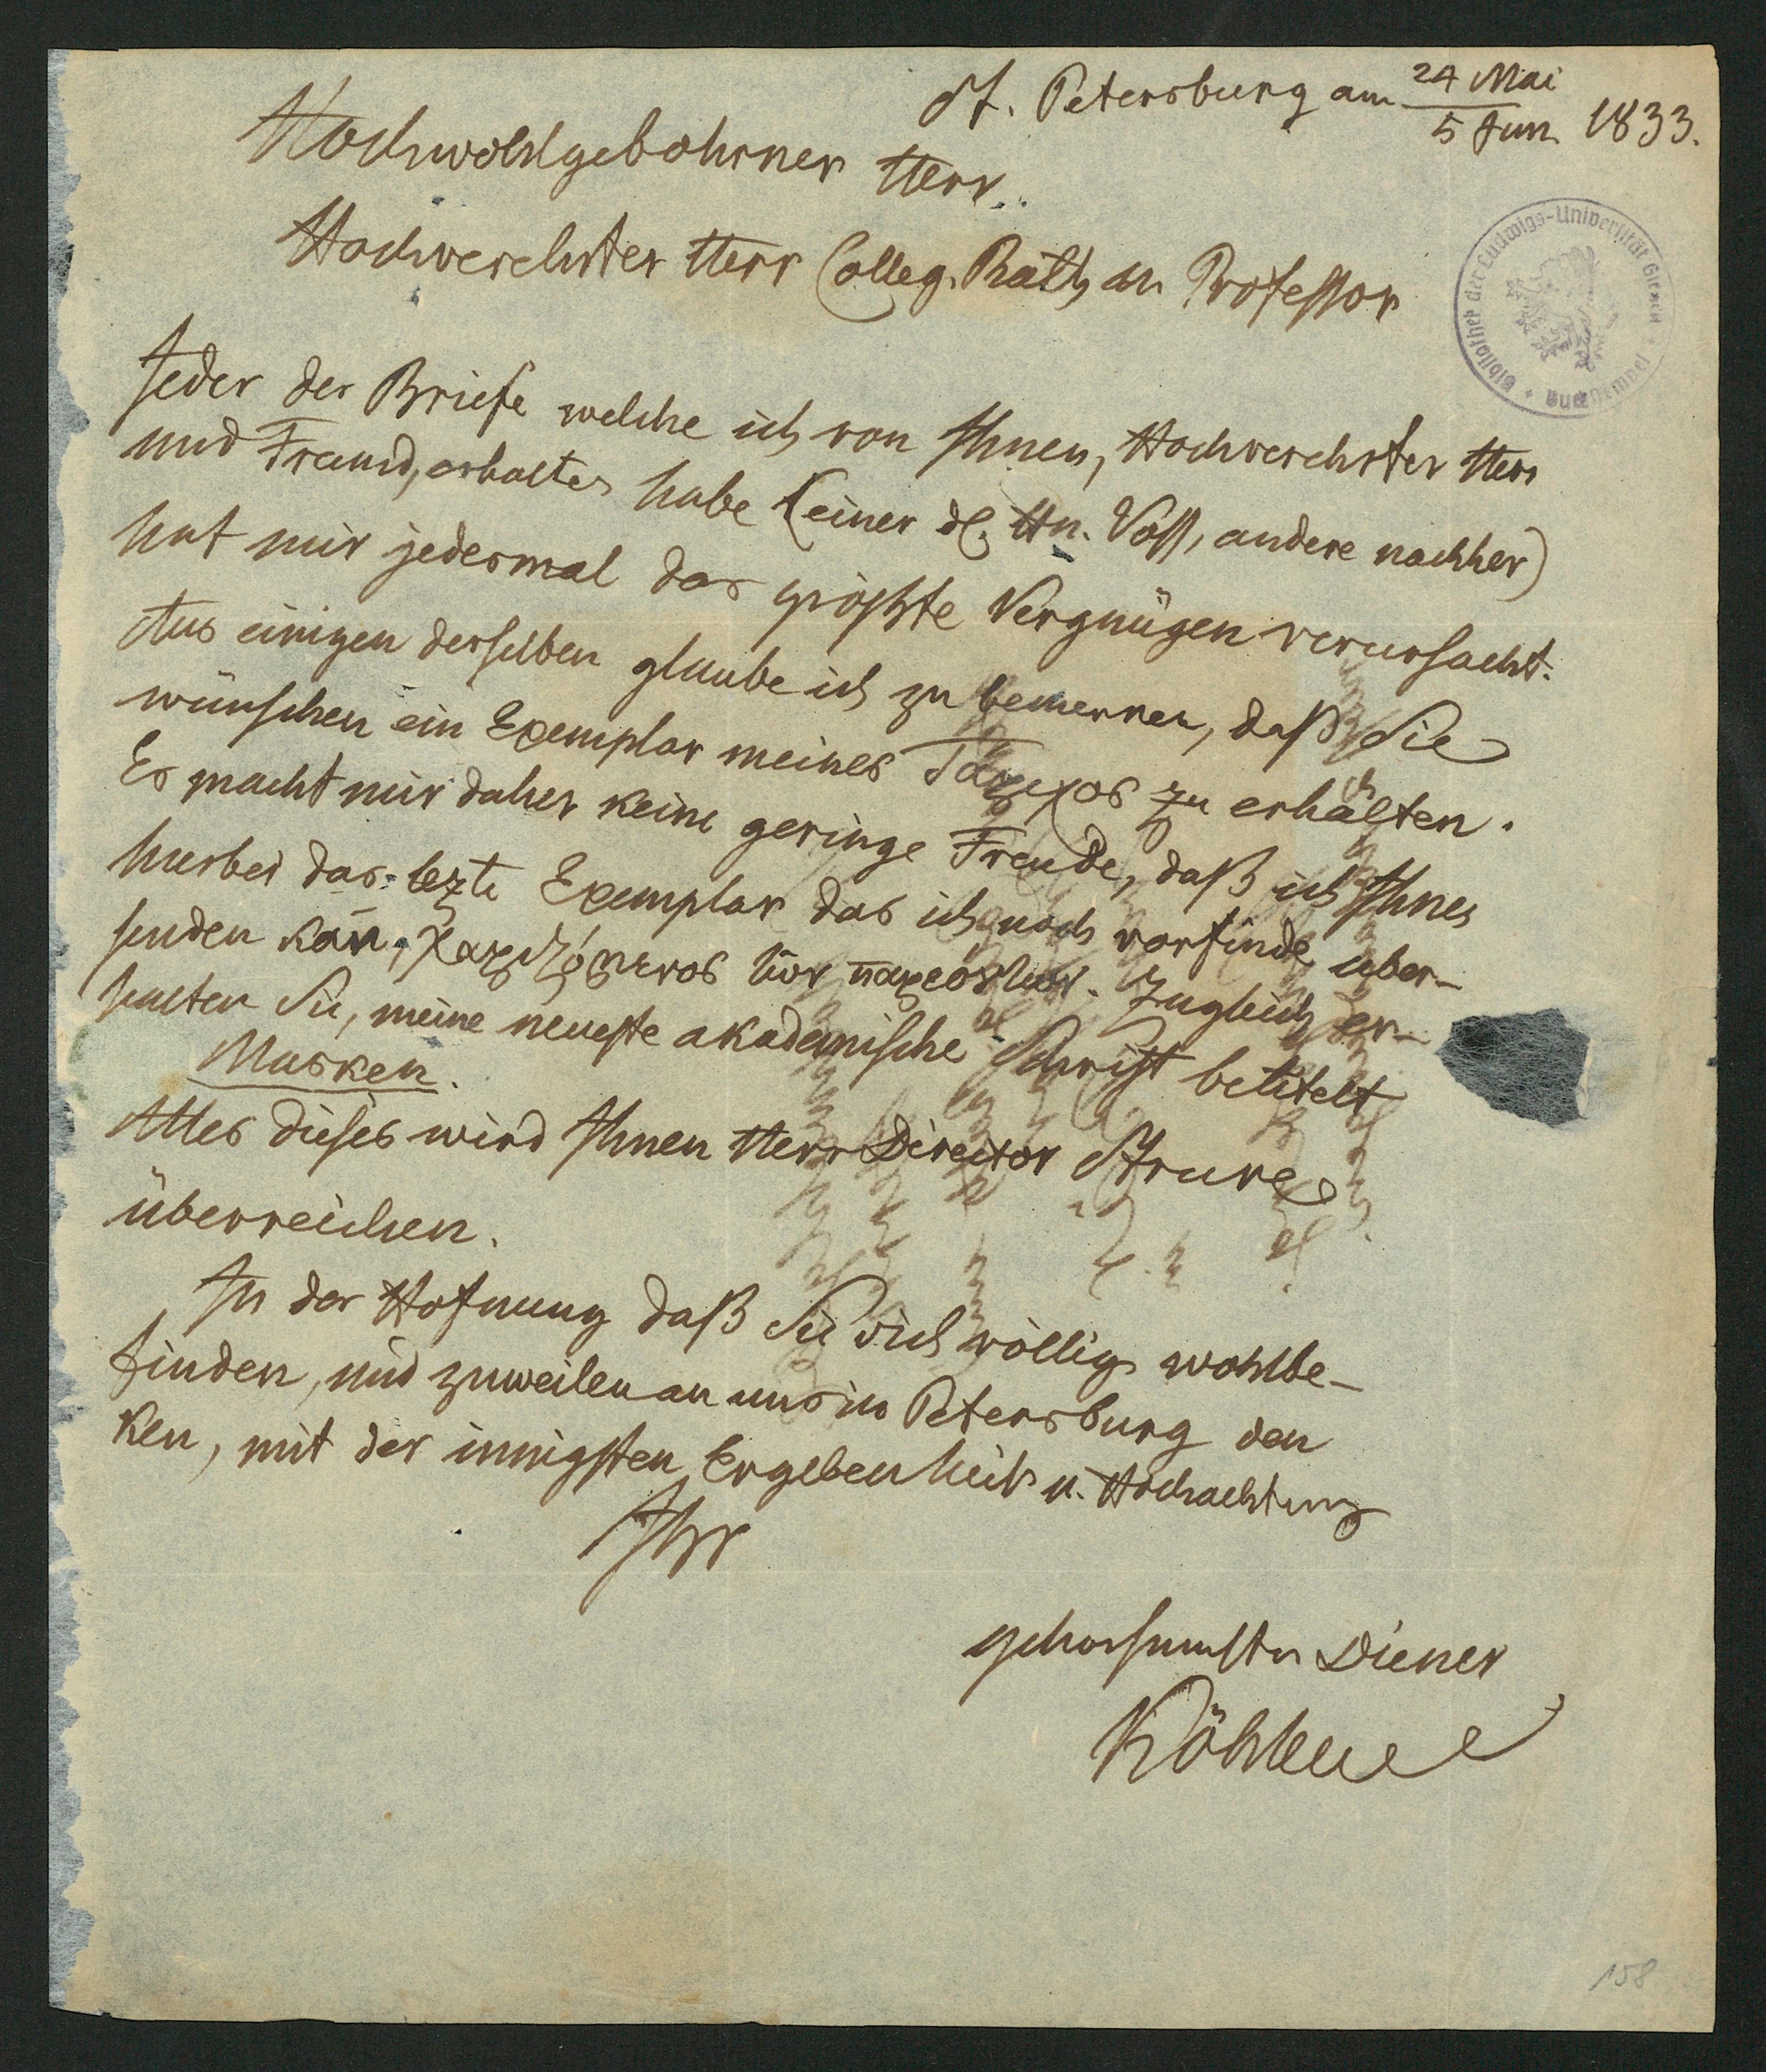 St. Petersburg am 24 Mai
5 Jun. 1833.
Hochwohlgebohrner Herr..
Hochverehrter Herr Colleg. Rath u. Professor
Bibliothek der Ludwigs-Universität Giesen
Jeder der Briefe welche ich von Ihnen, Hochverehrter Herr
und Freund, erhalten habe (einer d. Hn. Voss, andere nachher)
hat mir jedesmal das größte Vergnügen verursacht.
Aus einigen derselben glaube ich zu bemerken, daß Sie
wünschen ein Exemplar meines Τάριχος zu erhalten.
Es macht mir daher keine geringe Freude, daß ich Ihnen
hierbei das lezte Exemplar das ich noch vorfinde über-
senden kañ, χαριζόμενος Zugleich er-
halten Sie, meine neueste akademische Schrift betitelt
Masken.
Alles dieses wird Ihnen Herr Director Struve
überreichen.
In der Hofnung daß Sie sich völlig wohlbe-
finden, und zuweilen an uns in Petersburg den
ken, mit der innigsten Ergebenheit u. Hochachtung
Ihr
gehorsamster Diener
Köhler
158